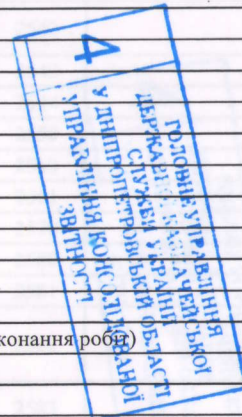 4
ГОЛОВНЕ УПРАВЛІННЯ
ДЕРЖАВНОЇ КАЗНАЧЕЙСЬКОЇ
СЛУЖБИ УКРАЇНИ
У ДНІПРОПЕТРОВСЬКІЙ ОБЛАСТІ
УПРАВЛІННЯ КОНСОЛІДОВАНОЇ
ЗВІТНОСТІ
конання робіт)